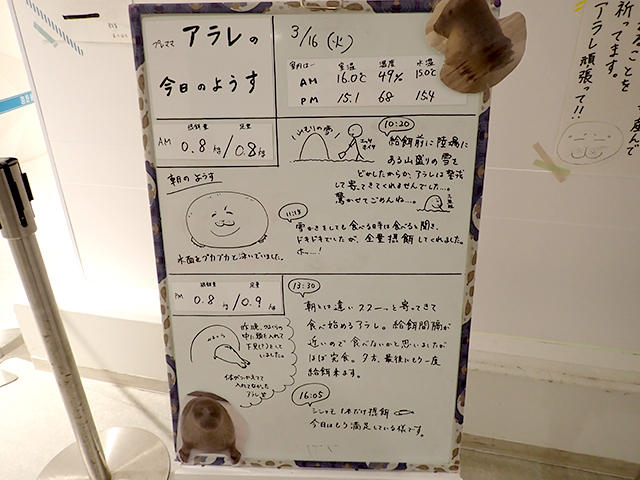 プレママ アラレの
今日のようす
3/16 (火)
室温 湿度 水温
AM 16.0℃ 49% 15.0℃
PM 15.1 68 15.4
AM
給餌量 / 定量
0.8 kg / 0.8 kg
朝のようす
水面をプカプカと泳いでいました。
山もりの雪
10:20
給餌前に陸場に
ある山盛りの雪を
どかしたからか、アラレは警戒
して寄ってきてくれませんでした…。
驚かせてごめんね…。
11:15
雪かきをしても食べる時は食べると聞き、
ドキドキでしたが、全量摂餌してくれました。
ホッ……!
PM
給餌量 / 定量
0.8 kg / 0.9 kg
昨晩、かまくらの
中に頭を入れて
下見(?)をして
いました。
体がつかえてて
入れてなかった
アラレ
13:30
朝とは違いスス〜っと寄ってきて
食べ始めるアラレ。給餌間隔が
近いので食べないかと思いましたが
ほぼ完食。夕方、最後にもう一度
給餌来ます。
16:05
シシャモ1本だけ摂餌
今日はもう満足している様です。
ことを
祈ってます。
アラレ頑張って!!